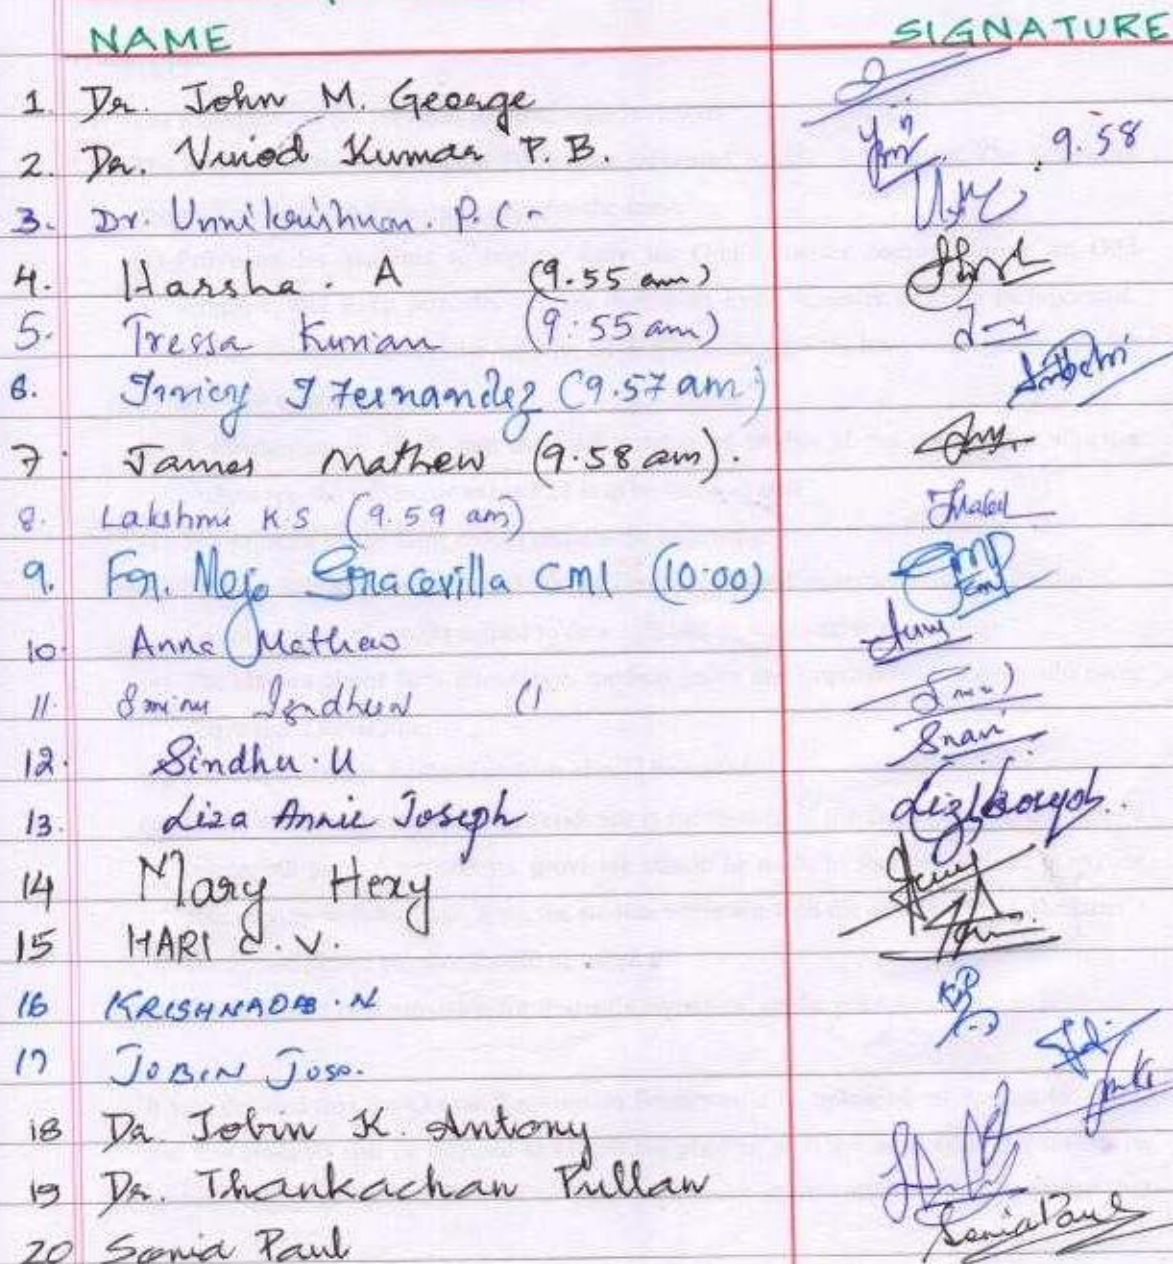 NAME SIGNATURE
1. Dr. John M. George
2. Dr. Vinod Kumar P. B. 9.58
3. Dr. Unnikrishnan. P. C -
4. Harsha. A (9.55 am)
5. Tressa Kurian (9.55 am)
6. J Fernandez (9.57 am)
7. James Mathew (9.58 am).
8. Lakshmi K.S (9.59 am)
9. Fr. Mejo Gracevilla CMI (10:00)
10. Anna Mathew
11. (1
12. Sindhu. U
13. Liza Annie Joseph
14 Mary Hexy
15 HARI C. V.
16 KRISHNADAS. N
17 JOBIN JOSE.
18 Dr. Jobin K. Antony
19 Dr. Thankachan Pullan
20 Sonia Paul Sonia Paul